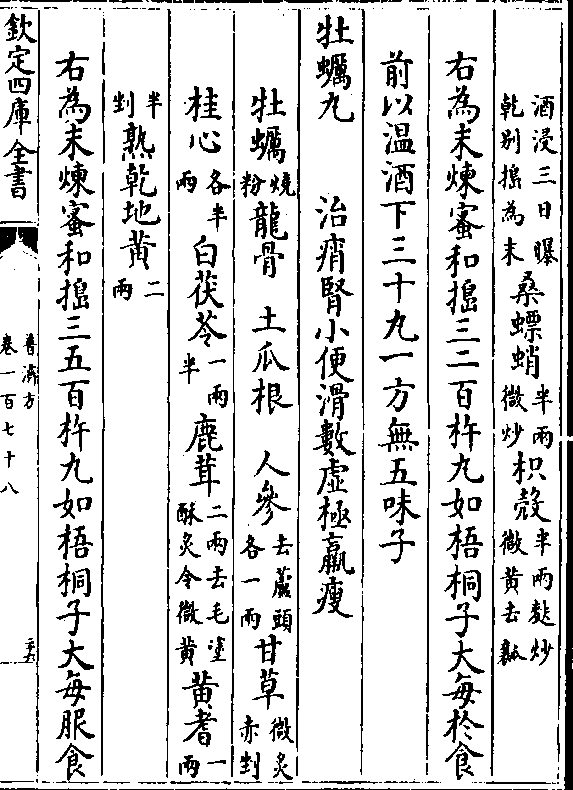 酒浸三日曝乾别搗為末桑螵蛸半兩微炒枳殻半兩麩炒微黄去瓤
右為末煉蜜和搗三二百杵丸如梧桐子大每於食
前以温酒下三十丸一方無五味子
牡蠣丸　治痟腎小便滑數虛極羸瘦
牡蠣燒粉龍骨　土瓜根　人參去蘆頭各一兩甘草微炙赤剉
桂心各半兩白茯苓一兩半鹿茸二兩去毛塗酥炙令微黄黄耆一兩
半剉熟乾地黄二兩
右為末煉蜜和搗三五百杵丸如梧桐子大每服食
欽定四庫全書
普濟方
卷一百七十八